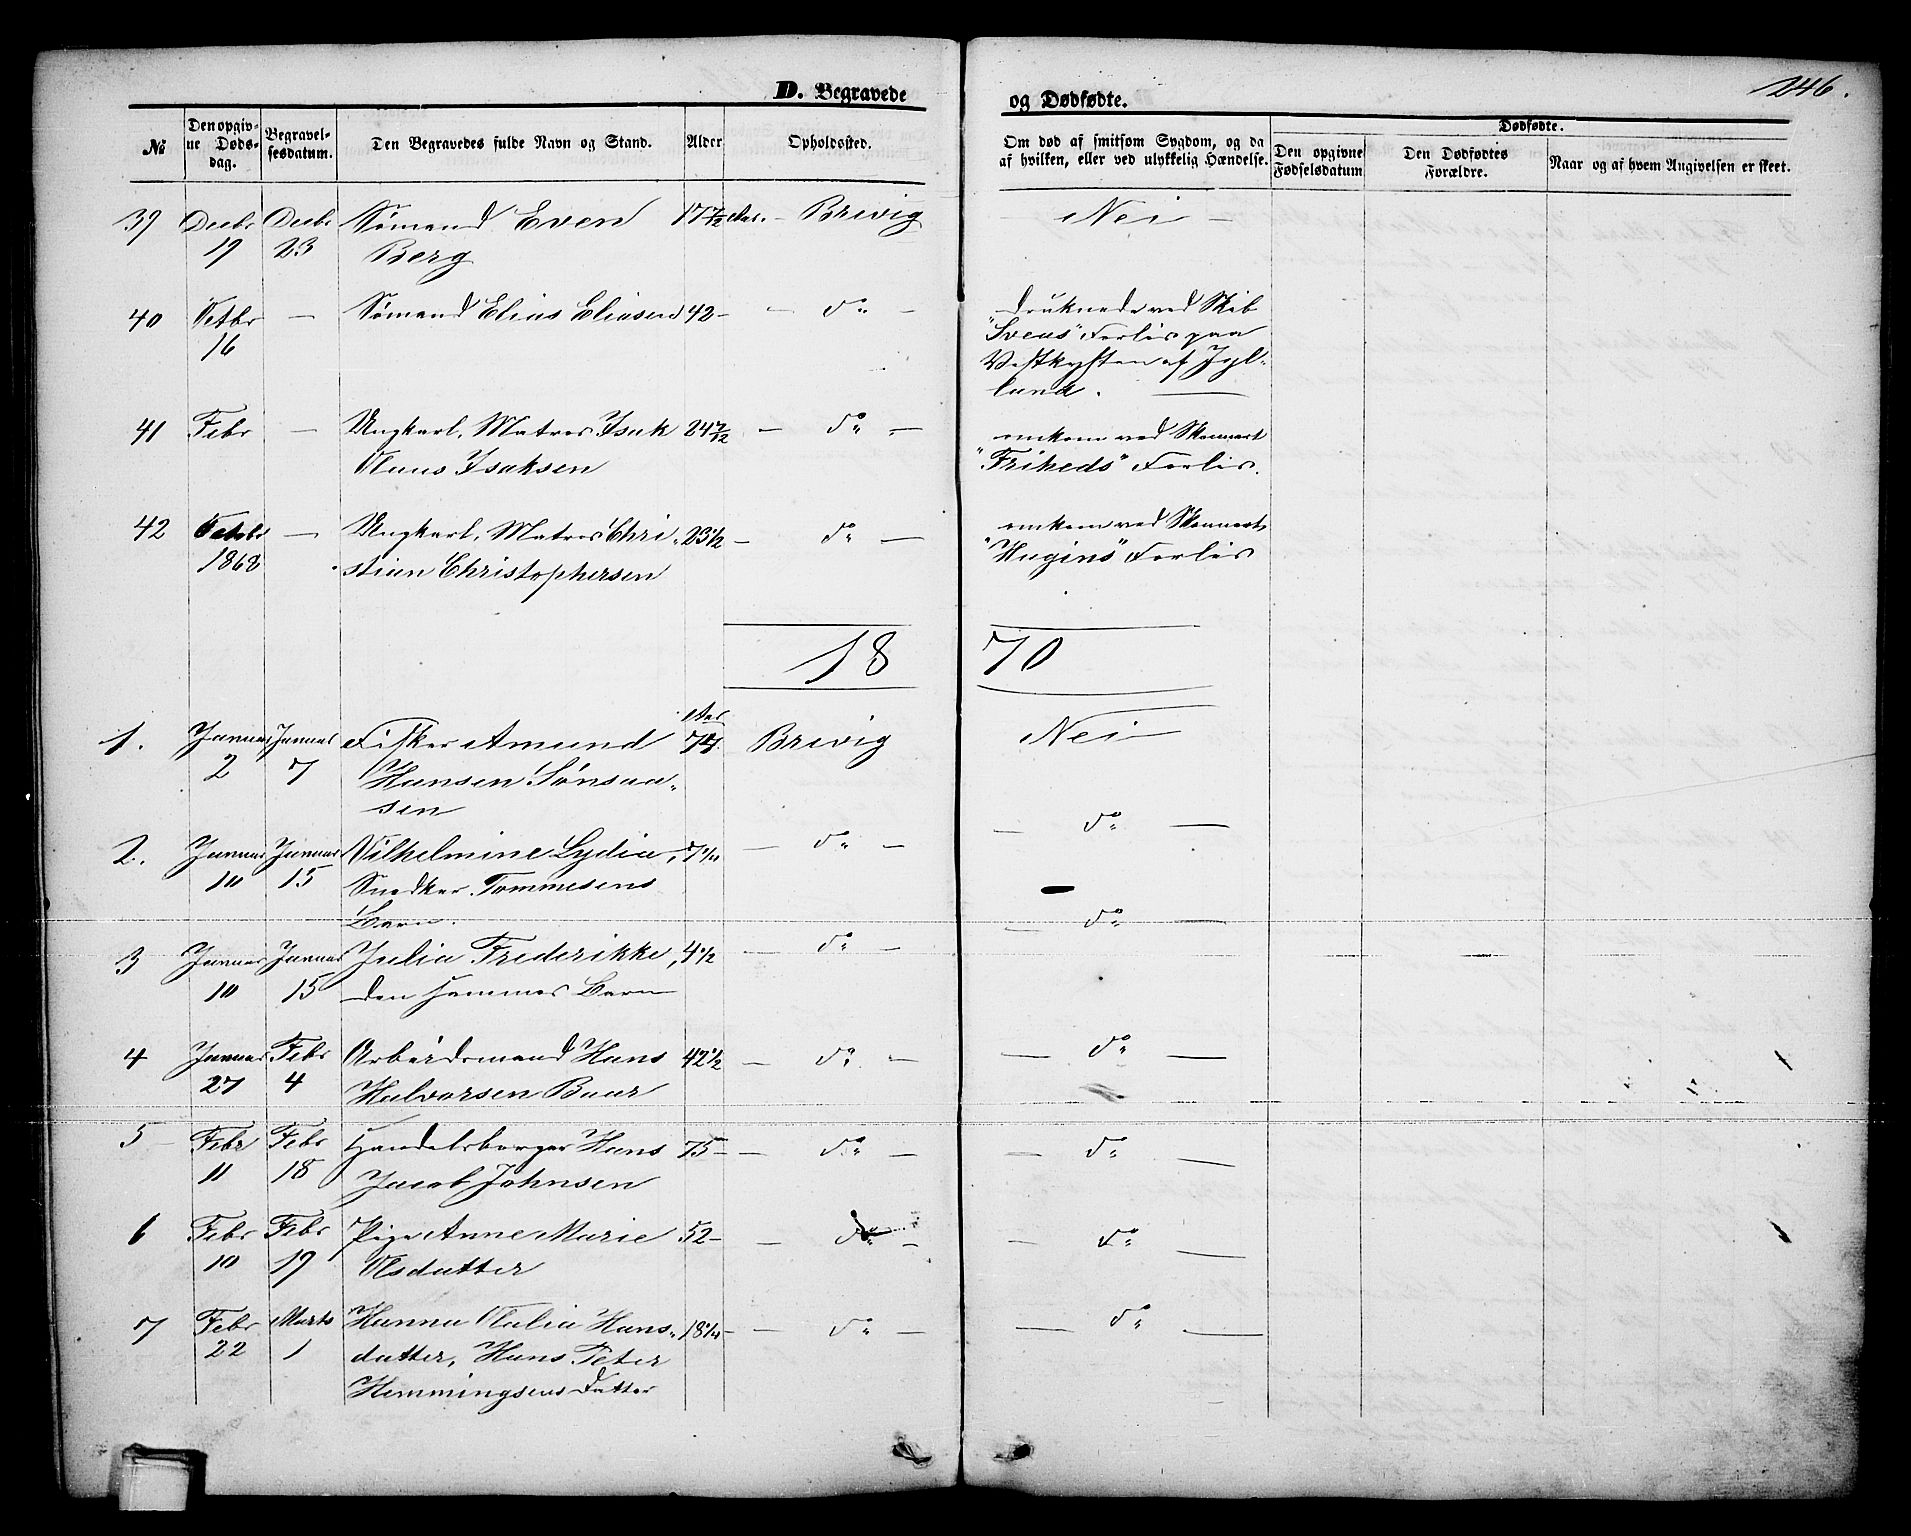 D. Begravede og Dødfødte.
246.
№ Den opgivne Dødsdag. Begravelsesdatum. Den Begravedes fulde Navn og Stand. Alder Opholdssted. Om død af smitsom Sygdom, og da af hvilken, eller ved ulykkelig Hændelse.
Dødfødte.
Den opgivne Fødselsdatum Den Dødfødtes Forældre. Naar og af hvem Angivelsen er skeet.
39 Decbr Decbr Sømand Even 17 7/12 Aar. – Brevig Nei –
19 23 Berg
40 Octbr — Sømand Elias Eliasen 42 – – do – druknede ved Skib
16 "Sveas" Forlis paa
Vestkysten af Jyl-
land. —
41 Febr — Ungkarl, Matros Isak 24 7/12 – do – omkom ved Skonnert
Olaus Isaksen "Friheds" Forlis.
42 Octbr — Ungkarl, Matros Chri- 23 1/2 – do – omkom ved Skonnert
1868 stian Christophersen "Hugins" Forlis
18 70
1. Januar Januar Fisker Amund Aar 74. Brevig Nei –
2 7 Hansen Sønsaa-
sen
2. Januar Januar Vilhelmine Lydia, – do – – do –
10 15 Snedker Tommesens
Barn.
3 Januar Januar Julia Frederikke, 4 1/2 – do – – do –
10 15 den Sammes Barn
4 Januar Febr Arbeidsmand Hans 42 1/2 – do – – do –
27 4 Halvorsen Buar
5 – Febr Febr Handelsborger Hans 75 – – do – – do –
11 18 Jacob Johnsen
6 Febr Febr Pige Anne Marie 52 – – do – – do –
10 19 Olsdatter
7 Febr Marts Hanna Olalia Hans- – do – – do –
22 1 datter, Hans Peter
Hemmingsens Datter